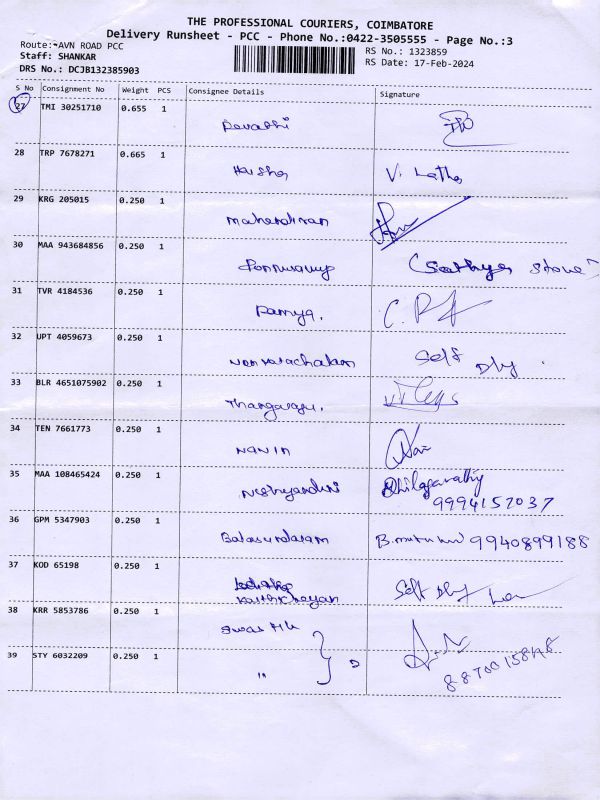 THE PROFESSIONAL COURIERS, COIMBATORE
Delivery Runsheet - PCC - Phone No.:0422-3505555 - Page No.:3
Route: AVN ROAD PCC
RS No.: 1323859
Staff: SHANKAR
RS Date: 17-Feb-2024
DRS No.: DCJB132385903
S No Consignment No Weight PCS Consignee Details Signature
27 TMI 30251710 0.655 1
Revathi
28 TRP 7678271 0.665 1
V. Latha
29 KRG 205015 0.250 1
30 MAA 943684856 0.250 1
Ponnusamy (Sathya Store)
31 TVR 4184536 0.250 1
Ramya.
32 UPT 4059673 0.250 1
Self Dly
33 BLR 4651075902 0.250 1
Thangaraju.
34 TEN 7661773 0.250 1
NAVIN
35 MAA 108465424 0.250 1
9994157037
36 GPM 5347903 0.250 1
9940899188
37 KOD 65198 0.250 1
Self Dly
Karthikeyan
38 KRR 5853786 0.250 1
39 STY 6032209 0.250 1
"